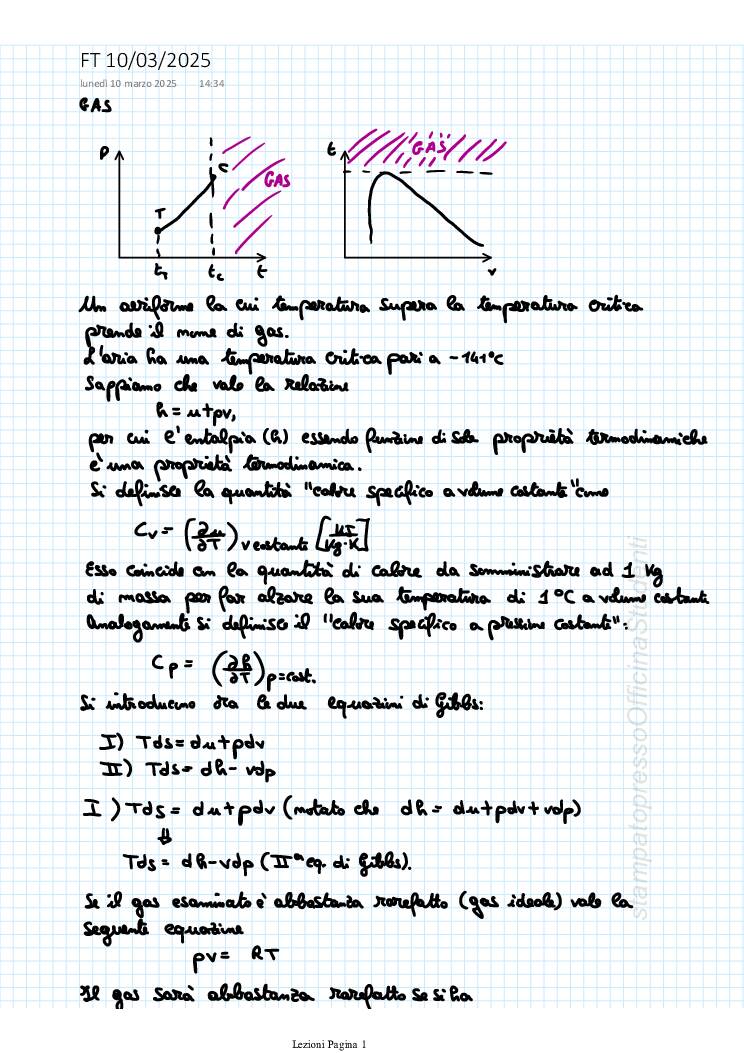 FT 10/03/2025
lunedì 10 marzo 2025 14:34
GAS
P
C
GAS
T
t_T t_c t
t
GAS
v
Un aeriforme la cui temperatura supera la temperatura critica
prende il nome di gas.
L'aria ha una temperatura critica pari a -141°C
Sappiamo che vale la relazione
h = u+pv,
per cui l'entalpia (h) essendo funzione di sole proprietà termodinamiche
è una proprietà termodinamica.
Si definisce la quantità "calore specifico a volume costante" come
Cv = (∂u/∂T) v costante [kJ/kg·K]
Esso coincide con la quantità di calore da somministrare ad 1 kg
di massa per far alzare la sua temperatura di 1°C a volume costante.
Analogamente si definisce il "calore specifico a pressione costante":
Cp = (∂h/∂T) p=cost.
Si introducono ora le due equazioni di Gibbs:
I) Tds = du+pdv
II) Tds = dh-vdp
I) Tds = du+pdv (notato che dh = du+pdv+vdp)
⇓
Tds = dh-vdp (IIª eq. di Gibbs).
Se il gas esaminato è abbastanza rarefatto (gas ideale) vale la
seguente equazione
pv = RT
Il gas sarà abbastanza rarefatto se si ha
stampatopressoOfficinaStudenti
Lezioni Pagina 1